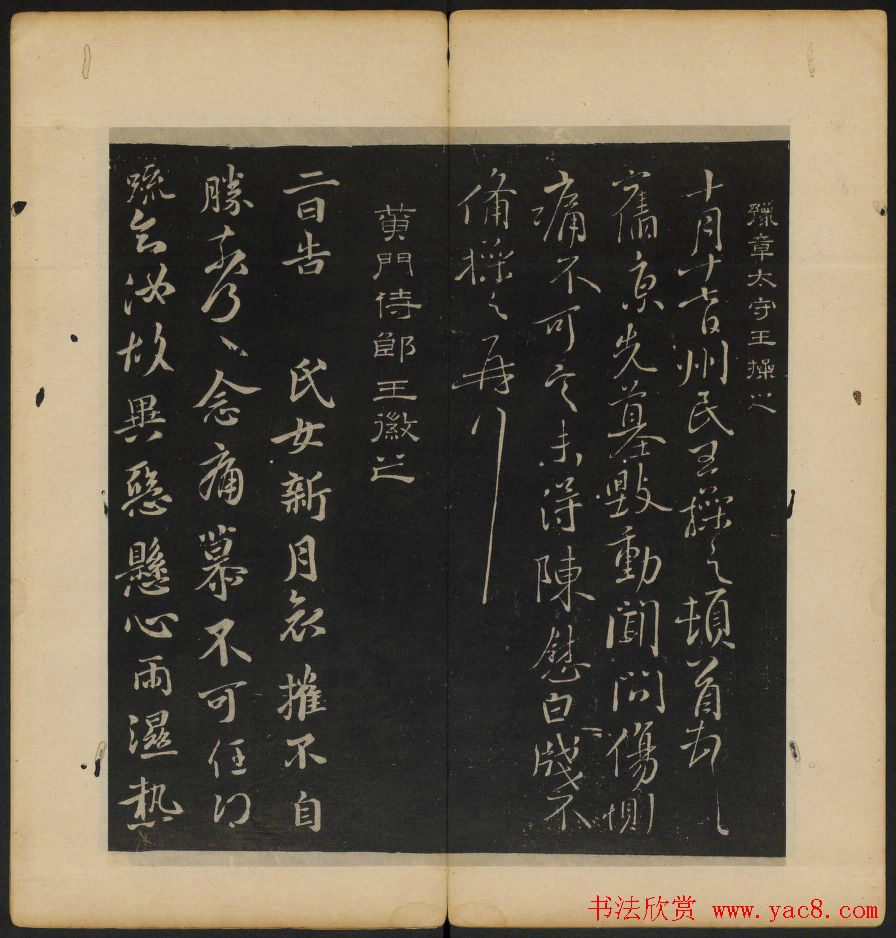 豫章太守王操之
十月十七日州民王操之頓首
舊京先墓毀動聞問傷惻
痛不可言未得陳慰白牋不
備操之再拜
黃門侍郎王徽之
二日告 氏女新月哀摧不自
勝奈何〻念痛慕不可任得
疏知汝故異惡懸心雨濕熱
书法欣赏 www.yac8.com